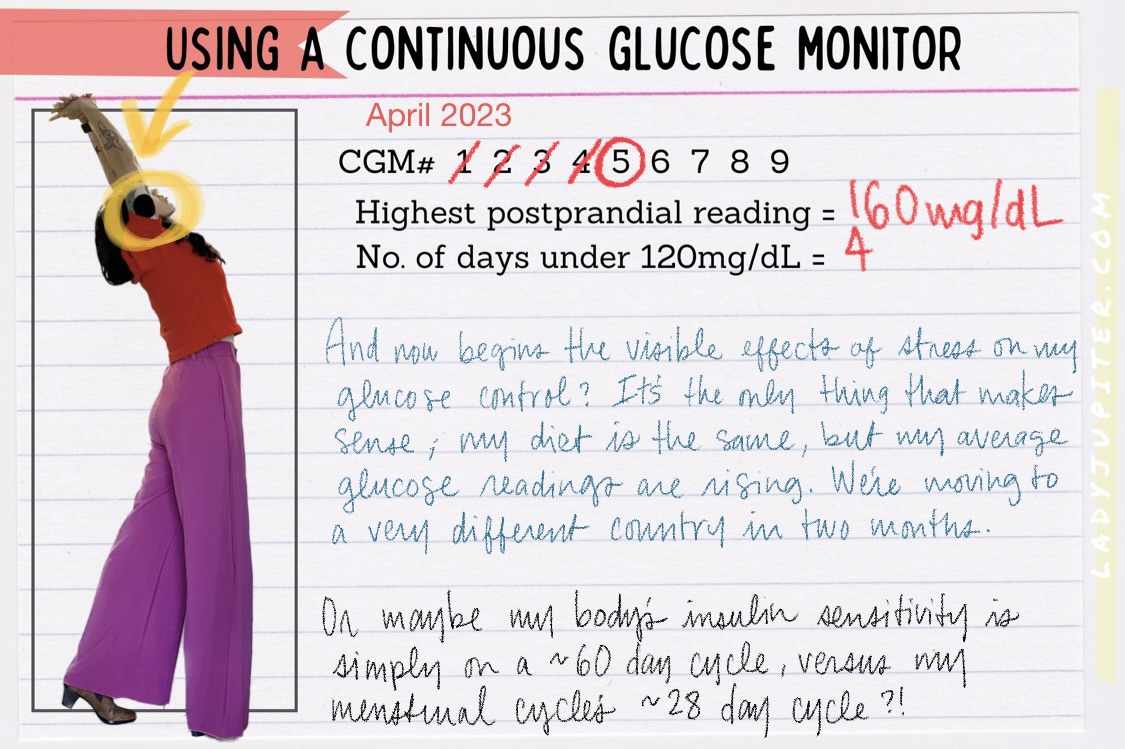 USING A CONTINUOUS GLUCOSE MONITOR
April 2023
CGM# 1 2 3 4 5 6 7 8 9
Highest postprandial reading = 160mg/dL
No. of days under 120mg/dL = 4
And now begins the visible effects of stress on my
glucose control? It's the only thing that makes
sense; my diet is the same, but my average
glucose readings are rising. We're moving to
a very different country in two months.
Or maybe my body's insulin sensitivity is
simply on a ~60 day cycle, versus my
menstrual cycle's ~28 day cycle?!
LADYJUPITER.COM